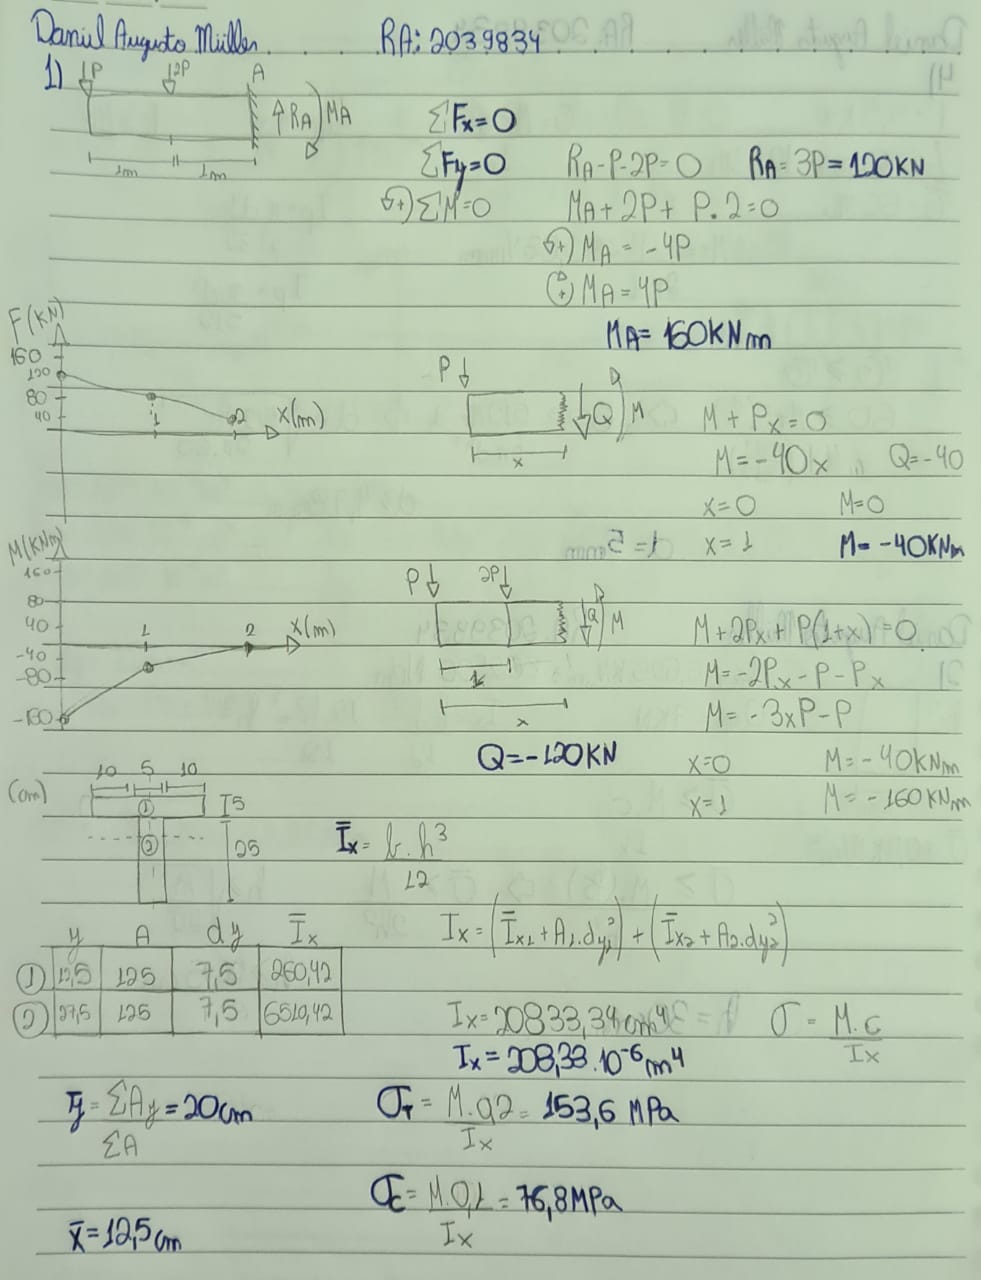 Daniel Augusto Müller. RA: 2039834
1) P 2P A
RA MA
1m 1m
ΣFx=0
ΣFy=0 RA-P-2P=0 RA=3P=120KN
+) ΣM=0 MA+2P+P.2=0
+) MA = -4P
(+) MA=4P
MA=160KNm
F(KN)
160
120
80
40
1 2 X(m)
P Q M
x
M+Px=0
M=-40x Q=-40
x=0 M=0
x=1 M=-40KNm
M(KNm)
160
80
40
-40
-80
-160
1 2 X(m)
P 2P Q M
x
M+2Px+P(1+x)=0
M=-2Px-P-Px
M=-3xP-P
Q=-120KN
x=0 M=-40KNm
x=1 M=-160KNm
(cm) 10 5 10
① 5
② 25
Īx = b.h³
12
y A dy Īx
① 12,5 125 7,5 260,42
② 27,5 125 7,5 6510,42
Ix=(Īx1+A1.dy1²)+(Īx2+A2.dy2²)
Ix=20833,34cm⁴ σ = M.c
Ix
Ix=208,33.10⁻⁶m⁴
ȳ=ΣAy=20cm
ΣA
σT= M.0,2 = 153,6 MPa
Ix
σc= M.0,1 = 76,8MPa
Ix
x̄=12,5cm